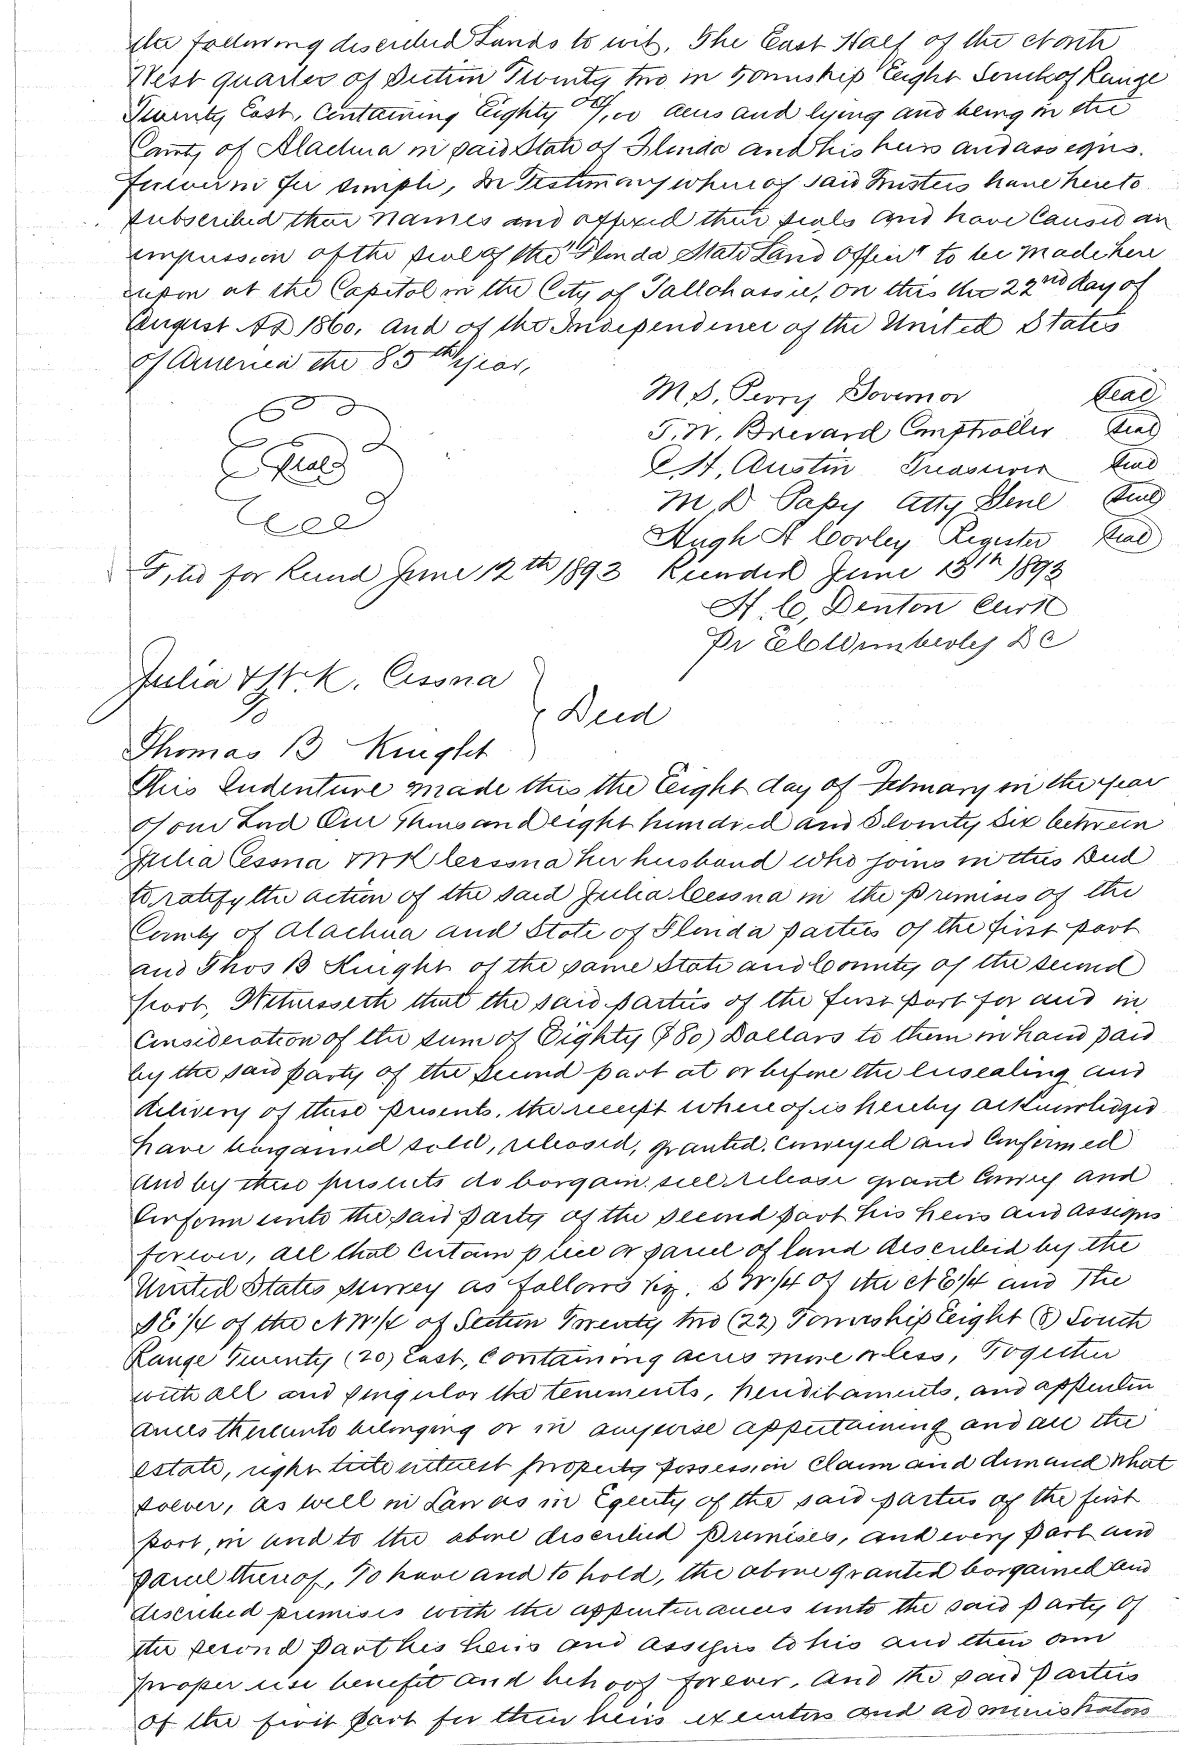 the following described Lands to wit, The East Half of the North
West quarter of Section Twenty two in Township Eight South of Range
Twenty East, Containing Eighty 00/100 acres and lying and being in the
County of Alachua in said State of Florida and his heirs and assigns.
forever in fee simple, In Testimony whereof said Trustees have hereto
subscribed their names and affixed their seals and have Caused an
impression of the seal of the "Florida State Land Office" to be made here
upon at the Capitol in the City of Tallahassee, on this the 22nd day of
August AD 1860, and of the Independence of the United States
of America the 85th year,
M. S. Perry Governor Seal
T. W. Brevard Comptroller Seal
C. H. Austin Treasurer Seal
Seal
M. D Papy Atty Genl Seal
Hugh A Corley Register Seal
Filed for Record June 12th 1893 Recorded June 13th 1893
H. C. Denton Clerk
Pr E C Wimberley D C
Julia & W. K. Cessna
To
Deed
Thomas B Knight
This Indenture made this the Eight day of February in the year
of our Lord One Thousand eight hundred and Seventy Six between
Julia Cessna & W K Cessna her husband who joins in this Deed
to ratify the action of the said Julia Cessna in the premises of the
County of Alachua and State of Florida parties of the first part
and Thos B Knight of the same State and County of the second
part, Witnesseth that the said parties of the first part for and in
Consideration of the sum of Eighty ($80) Dollars to them in hand paid
by the said party of the second part at or before the ensealing and
delivery of these presents, the receipt whereof is hereby acknowledged
have bargained sold, released, granted, Conveyed and Confirmed
and by these presents do bargain sell release grant Convey and
Confirm unto the said party of the second part his heirs and assigns
forever, all that Certain piece or parcel of land described by the
United States survey as follows viz. S W 1/4 of the N E 1/4 and The
S E 1/4 of the N W 1/4 of Section Twenty two (22) Township Eight (8) South
Range Twenty (20) East, Containing acres more or less, Together
with all and singular the tenements, hereditaments, and appurten
ances thereunto belonging or in anywise appertaining and all the
estate, right title interest property possession Claim and demand What
soever, as well in Law as in Equity of the said parties of the first
part, in and to the above described premises, and every part and
parcel thereof, To have and to hold, the above granted bargained and
described premises with the appurtenances unto the said party of
the second part his heirs and assigns to his and their own
proper use benefit and behoof forever, and the said parties
of the first part for their heirs executors and administrators